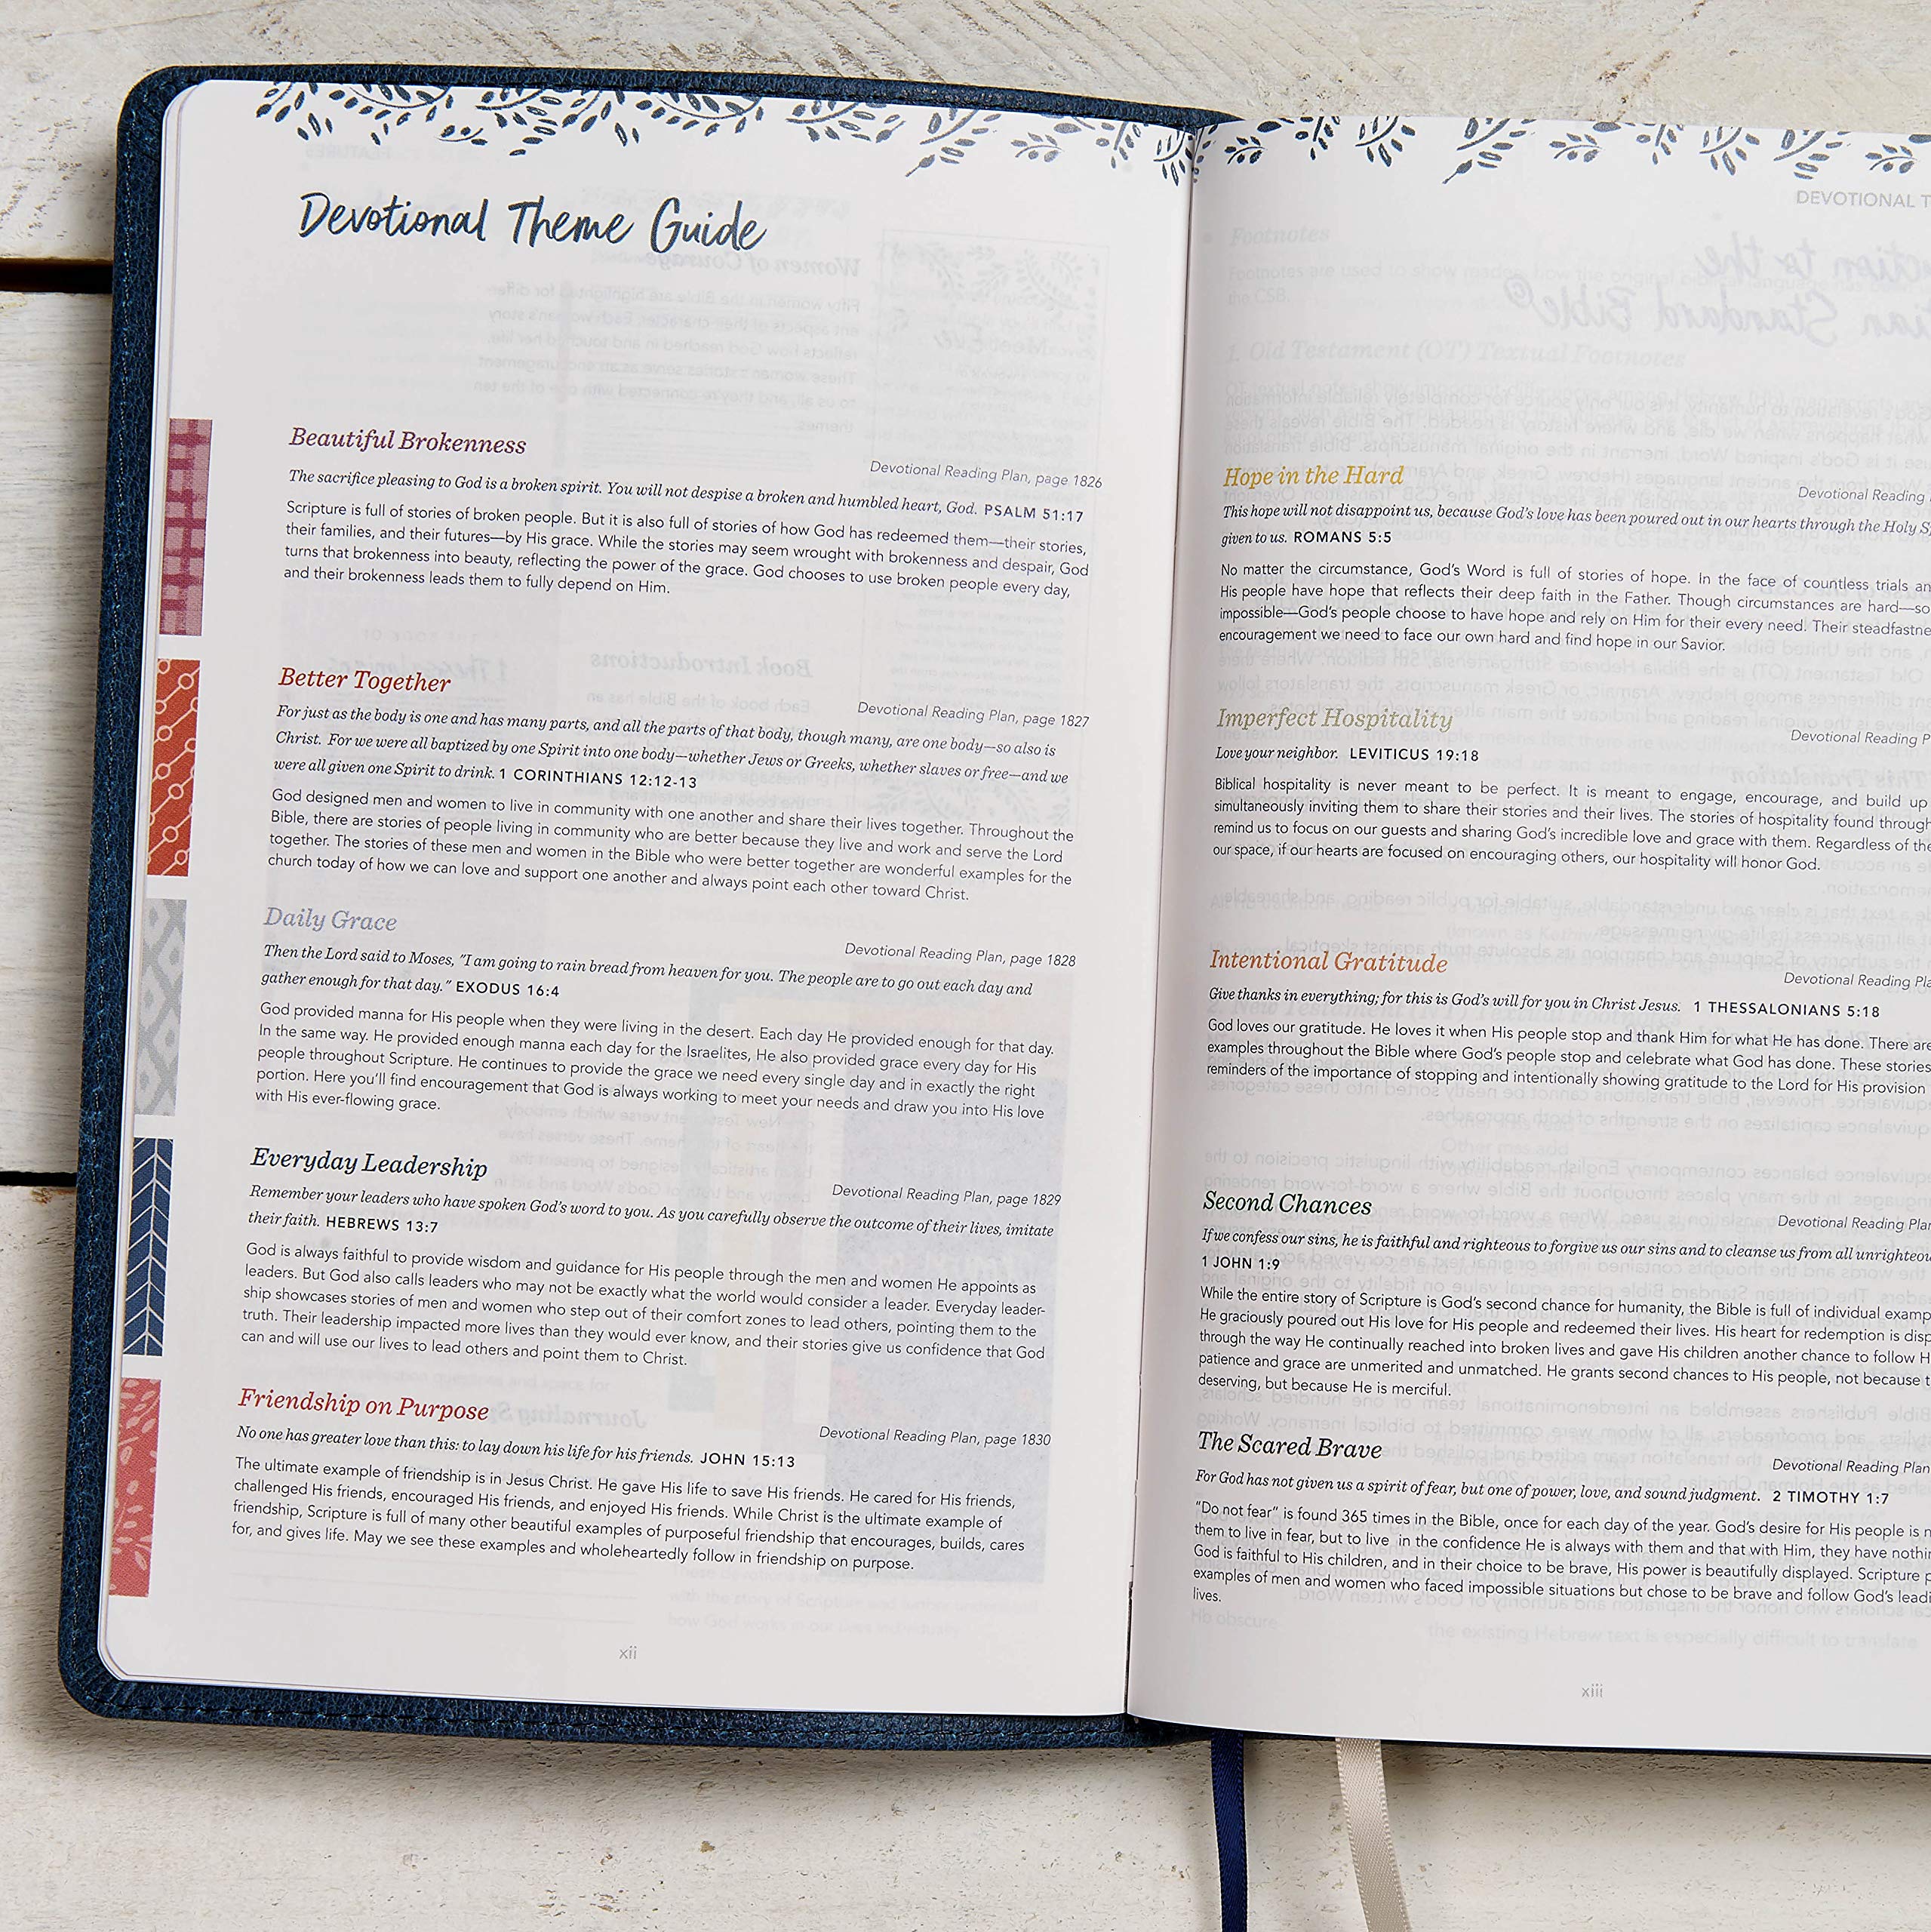 Devotional Theme Guide
Beautiful Brokenness
Devotional Reading Plan, page 1826
The sacrifice pleasing to God is a broken spirit. You will not despise a broken and humbled heart, God. PSALM 51:17
Scripture is full of stories of broken people. But it is also full of stories of how God has redeemed them—their stories,
their families, and their futures—by His grace. While the stories may seem wrought with brokenness and despair, God
turns that brokenness into beauty, reflecting the power of the grace. God chooses to use broken people every day,
and their brokenness leads them to fully depend on Him.
Better Together
Devotional Reading Plan, page 1827
For just as the body is one and has many parts, and all the parts of that body, though many, are one body—so also is
Christ. For we were all baptized by one Spirit into one body—whether Jews or Greeks, whether slaves or free—and we
were all given one Spirit to drink. 1 CORINTHIANS 12:12-13
God designed men and women to live in community with one another and share their lives together. Throughout the
Bible, there are stories of people living in community who are better because they live and work and serve the Lord
together. The stories of these men and women in the Bible who were better together are wonderful examples for the
church today of how we can love and support one another and always point each other toward Christ.
Daily Grace
Devotional Reading Plan, page 1828
Then the Lord said to Moses, "I am going to rain bread from heaven for you. The people are to go out each day and
gather enough for that day." EXODUS 16:4
God provided manna for His people when they were living in the desert. Each day He provided enough for that day.
In the same way. He provided enough manna each day for the Israelites, He also provided grace every day for His
people throughout Scripture. He continues to provide the grace we need every single day and in exactly the right
portion. Here you'll find encouragement that God is always working to meet your needs and draw you into His love
with His ever-flowing grace.
Everyday Leadership
Devotional Reading Plan, page 1829
Remember your leaders who have spoken God's word to you. As you carefully observe the outcome of their lives, imitate
their faith. HEBREWS 13:7
God is always faithful to provide wisdom and guidance for His people through the men and women He appoints as
leaders. But God also calls leaders who may not be exactly what the world would consider a leader. Everyday leader-
ship showcases stories of men and women who step out of their comfort zones to lead others, pointing them to the
truth. Their leadership impacted more lives than they would ever know, and their stories give us confidence that God
can and will use our lives to lead others and point them to Christ.
Friendship on Purpose
Devotional Reading Plan, page 1830
No one has greater love than this: to lay down his life for his friends. JOHN 15:13
The ultimate example of friendship is in Jesus Christ. He gave His life to save His friends. He cared for His friends,
challenged His friends, encouraged His friends, and enjoyed His friends. While Christ is the ultimate example of
friendship, Scripture is full of many other beautiful examples of purposeful friendship that encourages, builds, cares
for, and gives life. May we see these examples and wholeheartedly follow in friendship on purpose.
xii
DEVOTIONAL
Hope in the Hard
Devotional Reading
This hope will not disappoint us, because God's love has been poured out in our hearts through the Holy
given to us. ROMANS 5:5
No matter the circumstance, God's Word is full of stories of hope. In the face of countless trials
His people have hope that reflects their deep faith in the Father. Though circumstances are hard—so
impossible—God's people choose to have hope and rely on Him for their every need. Their
encouragement we need to face our own hard and find hope in our Savior.
Imperfect Hospitality
Devotional Reading
Love your neighbor. LEVITICUS 19:18
Biblical hospitality is never meant to be perfect. It is meant to engage, encourage, and build up
simultaneously inviting them to share their stories and their lives. The stories of hospitality found
remind us to focus on our guests and sharing God's incredible love and grace with them. Regardless of the
our space, if our hearts are focused on encouraging others, our hospitality will honor God.
Intentional Gratitude
Devotional Reading
Give thanks in everything; for this is God's will for you in Christ Jesus. 1 THESSALONIANS 5:18
God loves our gratitude. He loves it when His people stop and thank Him for what He has done. There are
examples throughout the Bible where God's people stop and celebrate what God has done. These stories
reminders of the importance of stopping and intentionally showing gratitude to the Lord for His provision
Second Chances
Devotional Reading
If we confess our sins, he is faithful and righteous to forgive us our sins and to cleanse us from all
1 JOHN 1:9
While the entire story of Scripture is God's second chance for humanity, the Bible is full of individual
He graciously poured out His love for His people and redeemed their lives. His heart for redemption is
through the way He continually reached into broken lives and gave His children another chance to follow
patience and grace are unmerited and unmatched. He grants second chances to His people, not because
deserving, but because He is merciful.
The Scared Brave
Devotional Reading Plan
For God has not given us a spirit of fear, but one of power, love, and sound judgment. 2 TIMOTHY 1:7
"Do not fear" is found 365 times in the Bible, once for each day of the year. God's desire for His people is
them to live in fear, but to live in the confidence He is always with them and that with Him, they have
God is faithful to His children, and in their choice to be brave, His power is beautifully displayed. Scripture
examples of men and women who faced impossible situations but chose to be brave and follow God's
lives.
xiii